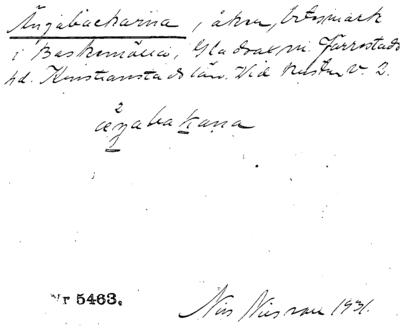 Ängabackarna, åker, betesmark
i Baskemölla, Gladsax sn. Järrestads
hd. Kristianstads län. Vid kusten v. 2.
2
æŋabakana
Nr 5463.
Nils Nilsson 1931.